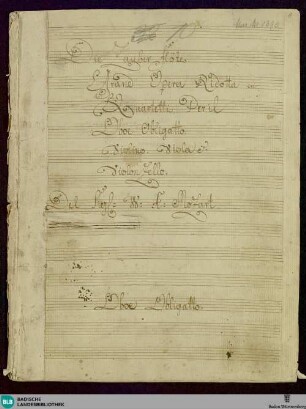 Die Zauber Flöte
Grand Opera Ridotta in
Quartetti Per il
Oboe Obligatto
Violino Viola è
Violonzello.
Del Sigl: W: A: Mozart
Oboe Obligatto.
BLB
BADISCHE
LANDESBIBLIOTHEK
Baden-Württemberg